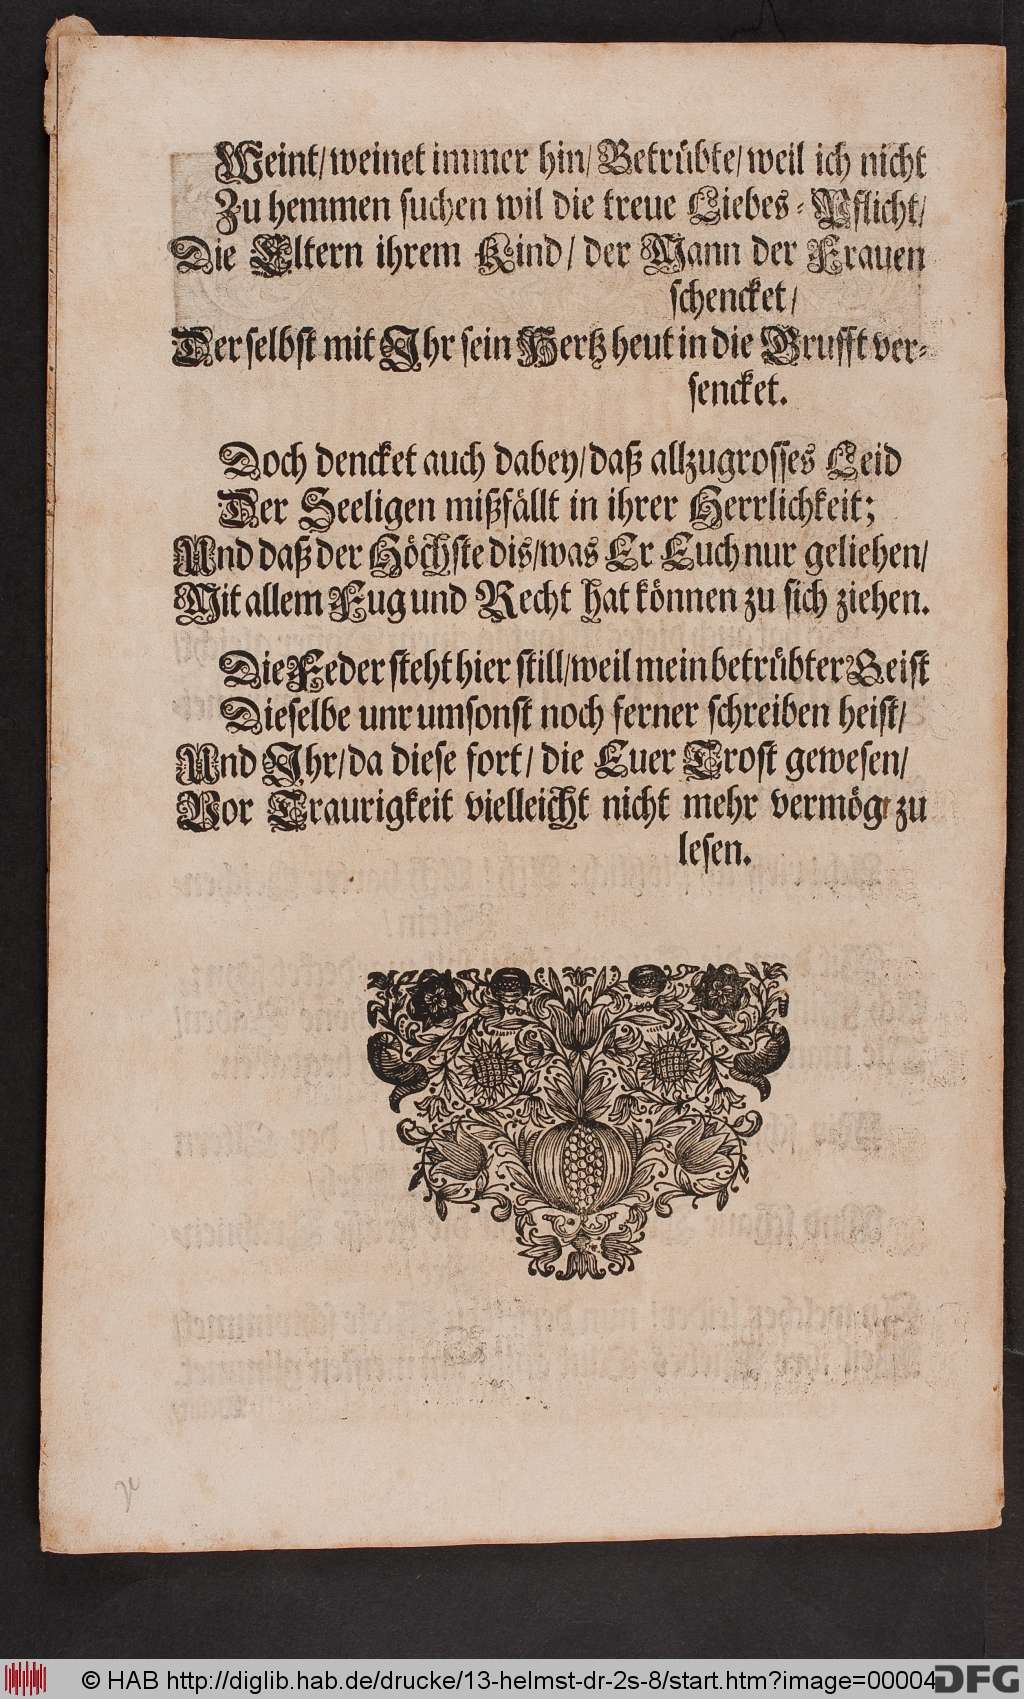 Weint/ weinet immer hin/ Betrübte/ weil ich nicht
Zu hemmen suchen wil die treue Liebes-Pflicht/
Die Eltern ihrem Kind/ der Mann der Frauen
schencket/
Der selbst mit Ihr sein Hertz heut in die Grufft ver-
sencket.
Doch dencket auch dabey/ daß allzugrosses Leid
Der Seeligen mißfällt in ihrer Herrlichkeit;
Und daß der Höchste dis/ was Er Euch nur geliehen/
Mit allem Fug und Recht hat können zu sich ziehen.
Die Feder steht hier still/ weil mein betrübter Geist
Dieselbe unr umsonst noch ferner schreiben heist/
Und Ihr/ da diese fort/ die Euer Trost gewesen/
Vor Traurigkeit vielleicht nicht mehr vermögt zu
lesen.
© HAB http://diglib.hab.de/drucke/13-helmst-dr-2s-8/start.htm?image=00004
DFG